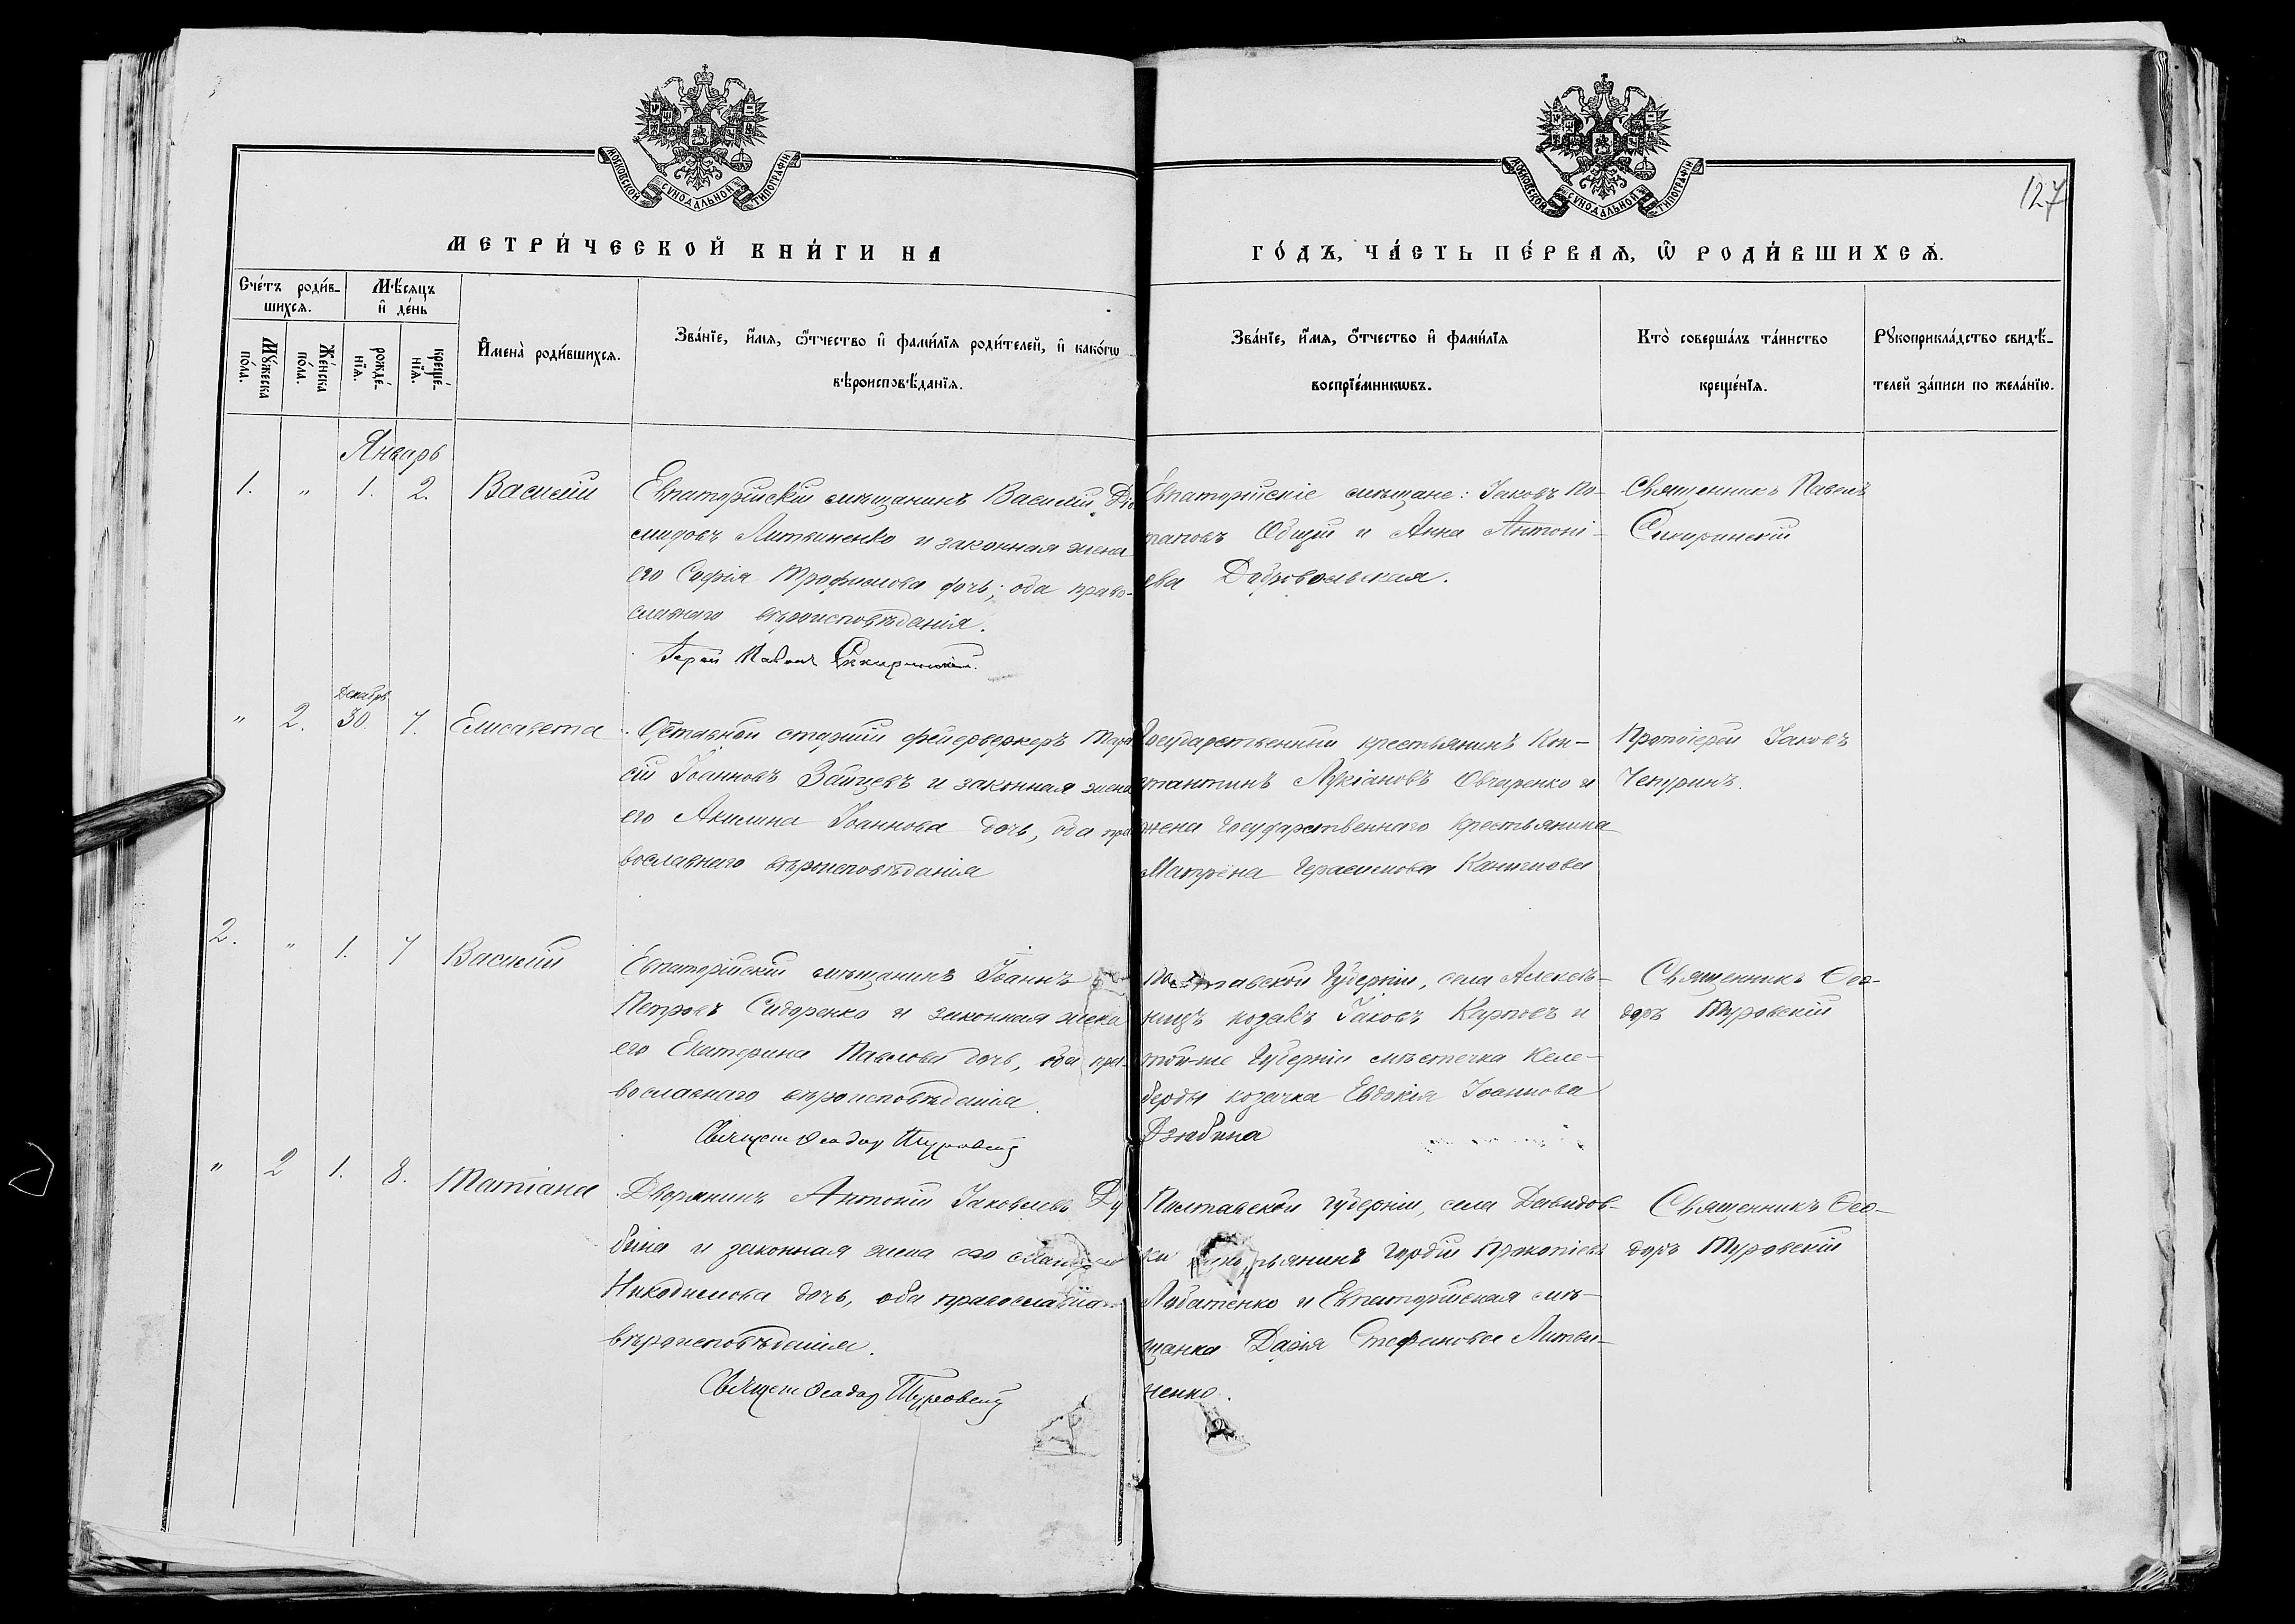 МОСКОВСКОЙ СѴНОДАЛЬНОЙ ТИПОГРАФІИ
МОСКОВСКОЙ СѴНОДАЛЬНОЙ ТИПОГРАФІИ
127
МЕТРИ́ЧЕСКОЙ КНИ́ГИ НА
ГО́ДЪ, ЧА́СТЬ ПЕ́РВАѦ, Ѽ РОДИ́ВШИХСѦ.
Сче́тъ роди́в-
шихсѧ.
Мѣ́сѧцъ
и҆ де́нь
Мꙋ́жеска
по́ла.
Же́нска
по́ла.
рожде́-
нїѧ.
креще́-
нїѧ.
И҆мена̀ роди́вшихсѧ.
Зва́нїе, и҆́мѧ, ѻ҆́тчество и҆ фами́лїѧ роди́телей, и҆ како́гѡ
вѣроисповѣ́данїѧ.
Зва́нїе, и҆́мѧ, ѻ҆́тчество и҆ фами́лїѧ
воспрїе́мникѡвъ.
Кто̀ соверша́лъ та́инство
креще́нїѧ.
Рꙋкоприкла́дство свидѣ́-
телей за́писи по жела́нїю.
Январь
1. " 1. 2. Василій
Евпаторійскій мѣщанинъ Василій Дio-
мидовъ Литвиненко и законная жена
его Софія Трофимова дочь; оба право-
славнаго вѣроисповѣданія.
Іерей Павелъ
Евпаторійскіе мѣщане: Іаковъ По-
таповъ Общій и Анна Антоні-
ева Добровольская.
Священникъ Павелъ
Декабрь
" 2. 30. 7. Елисавета
Отставной старшій фейерверкеръ Тара-
сій Іоанновъ Зайцевъ и законная жена
его Акилина Іоаннова дочь, оба пра-
вославнаго вѣроисповѣданія
Государственный крестьянинъ Кон-
стантинъ Лукіановъ Овчаренко и
жена государственнаго крестьянина
Матрена Герасимова
Протоіерей Іаковъ
Чепуринъ.
2. " 1. 7 Василій
Евпаторійскій мѣщанинъ Іоаннъ
Петровъ Сидоренко и законная жена
его Екатерина Павлова дочь, оба пра-
вославнаго вѣроисповѣданія.
Священ Ѳеодор Туровскій
Полтавской Губерніи, села Алексѣ-
козакъ Іаковъ Карповъ и
той-же Губерніи мѣстечка Келе-
берды козачка Евдокія Іоаннова
Дзюбина
Священникъ Ѳео-
доръ Туровскій
" 2 1. 8. Татіана
Дворянинъ Антоній Іаковлевъ Ду-
бина и законная жена его
Никодимова дочь, оба православнаго
вѣроисповѣданія.
Священ Ѳеодор Туровскій
Полтавской губерніи, села Давидов-
ки Гордій Прокопіевъ
и Евпаторійская мѣ-
щанка Дарія Стефанова Литви-
ненко.
Священникъ Ѳео-
доръ Туровскій